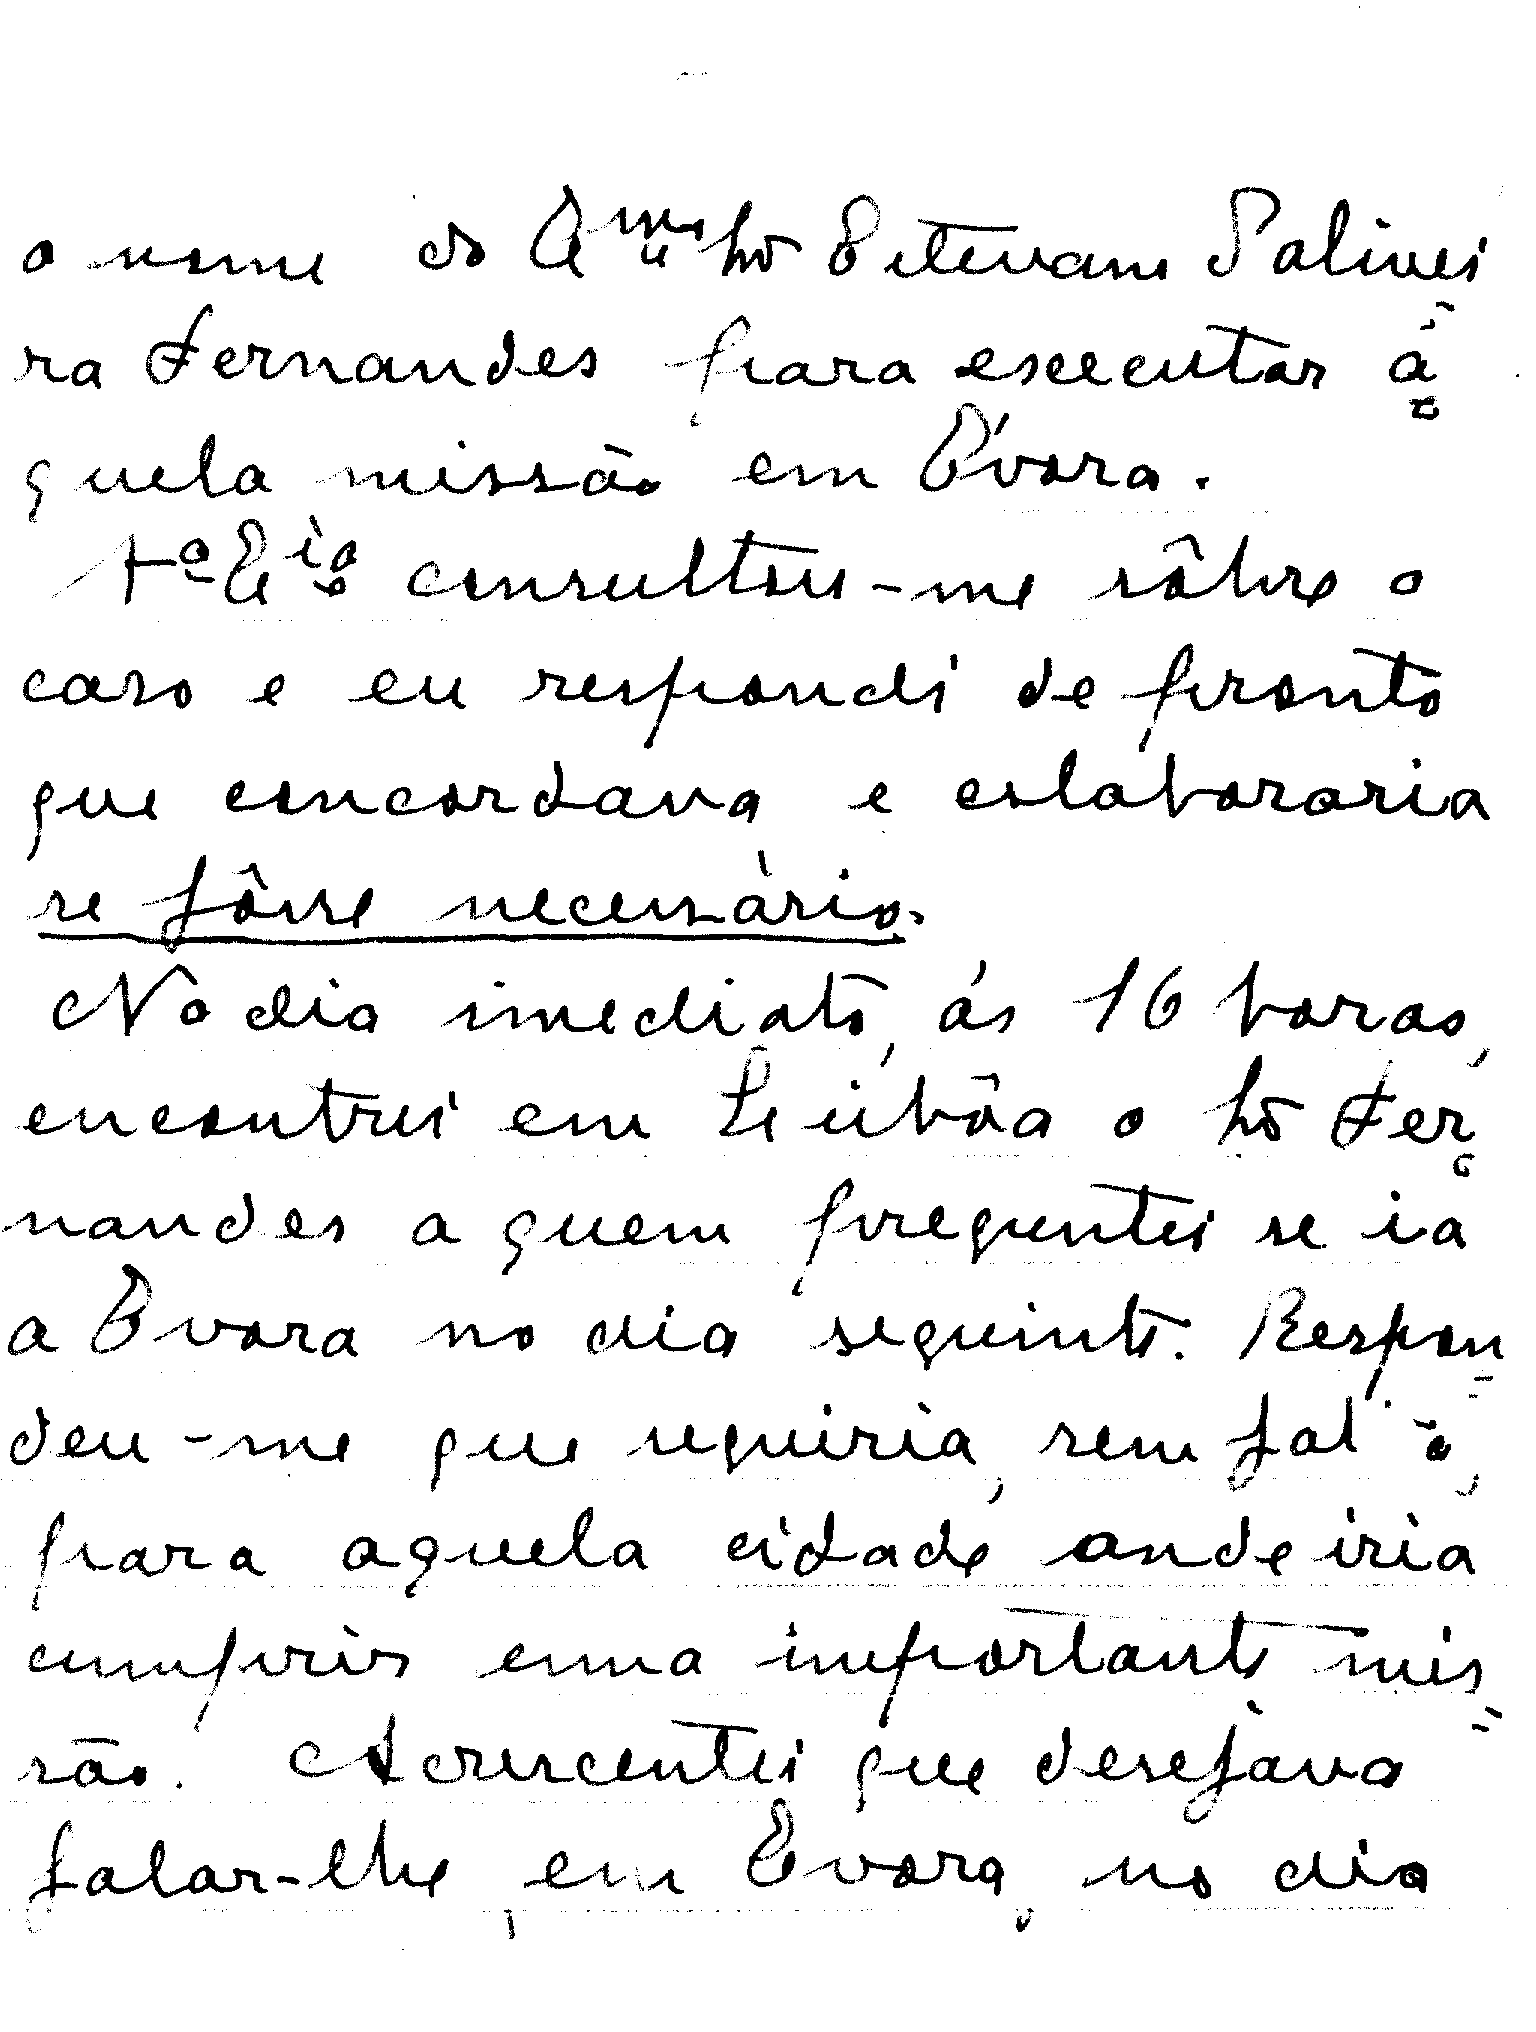 o nome do Exmo Sr Estevam Saliuei
ra Fernandes para executar à
quela missão em Évora.
Sª Eiª consultou-me sôbre o
caso e eu respondi de pronto
que concordava e colaboraria
se fôsse necessário.
No dia imediato, ás 16 horas,
encontrei em Lisbôa o Sr Fer
nandes a quem preguntei se ia
a Evora no dia seguinte. Respon
deu-me que seguiria, sem fal
para aquela cidade onde iria
cumprir uma importante mis
são. Acrescentei que desejava
falar-lhe, em Evora, no dia